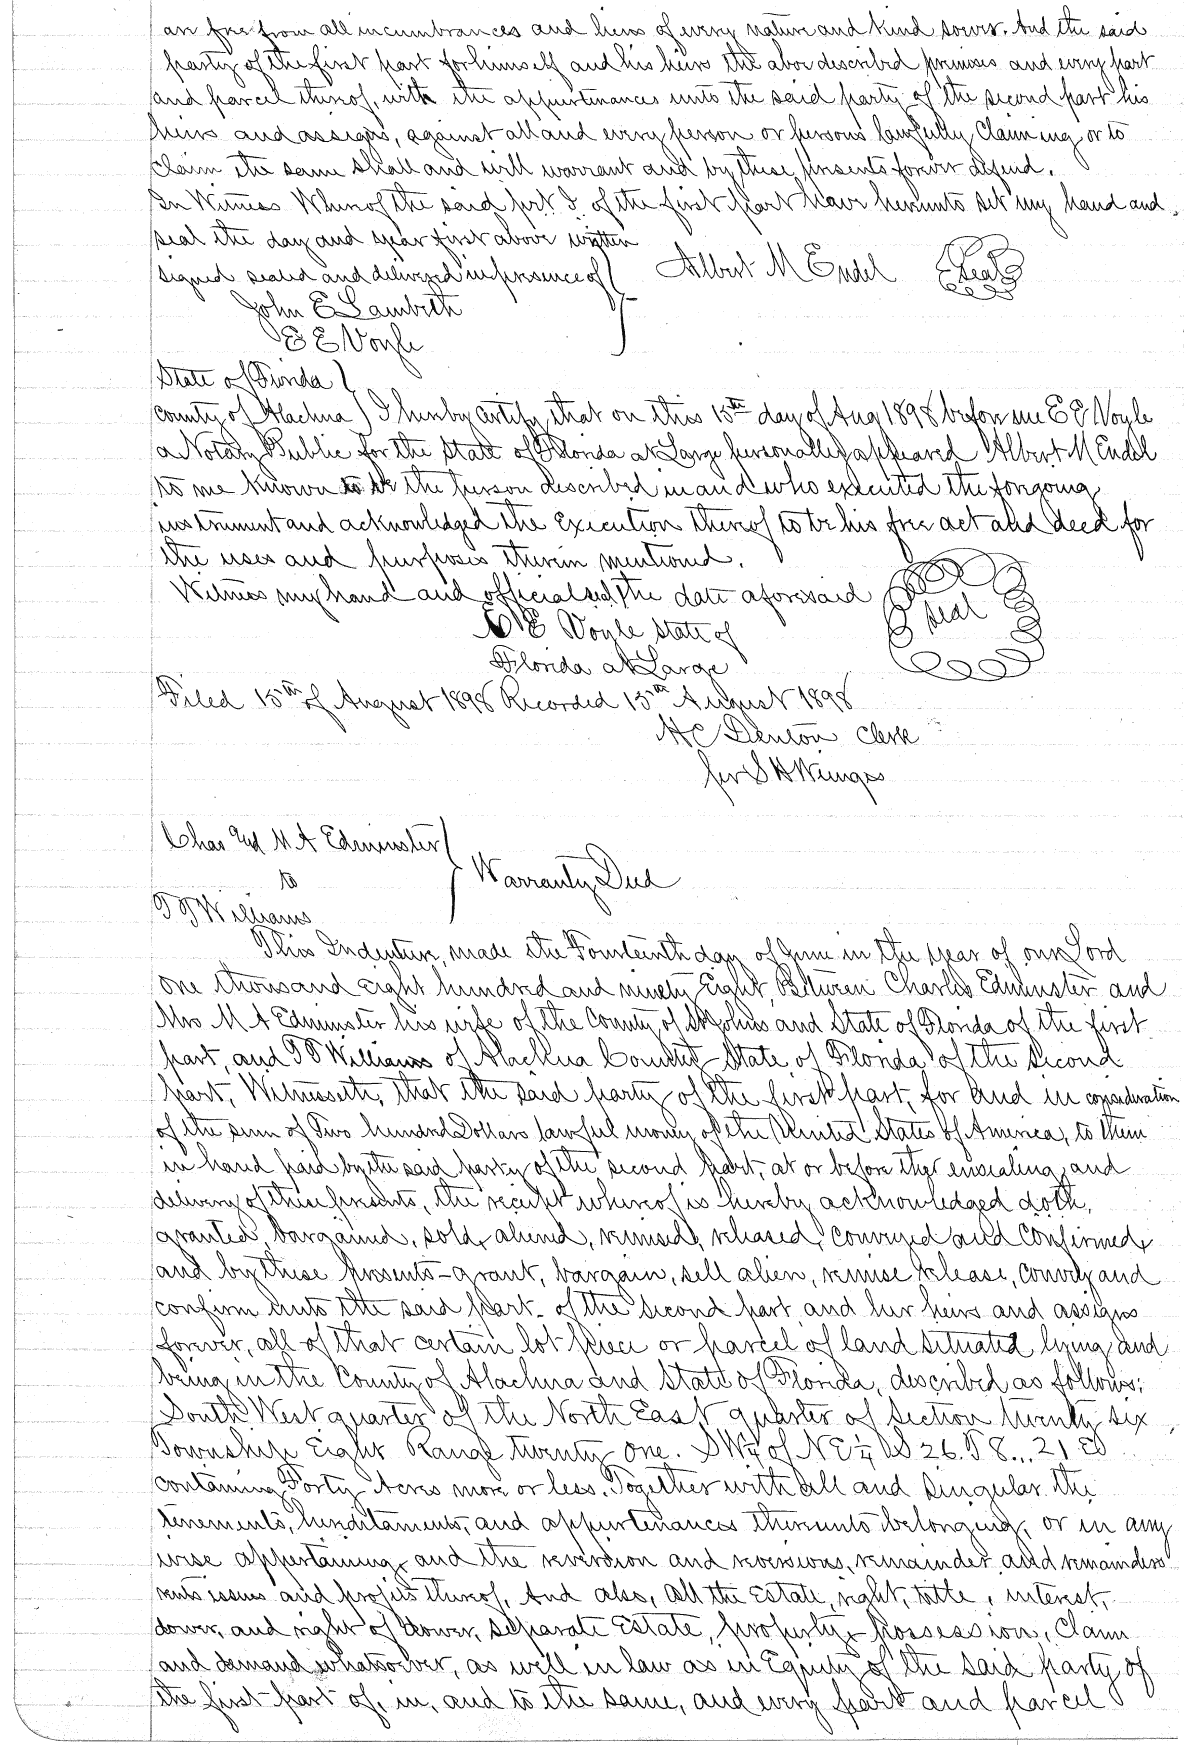 are free from all incumbrances and liens of every nature and kind soever. And the said
party of the first part for himself and his heirs the above described premises and every part
and parcel thereof, with the appurtenances unto the said party of the second part his
heirs and assigns, against all and every person or persons lawfully claiming or to
claim the same shall and will warrant and by these presents forever defend.
In Witness Whereof the said prt of the first part have hereunto set my hand and
seal the day and year first above written
signed sealed and delivered in presence of } Albert M Endel Seal
John E Lambeth
E E Voyle
State of Florida }
County of Alachua ) I hereby certify, that on this 15th day of Aug 1898 before me E E Voyle
a Notary Public for the State of Florida at Large personally appeared Albert M Endel
to me known to be the person described in and who executed the forgoing
instrument and acknowledged the execution thereof to be his free act and deed for
the uses and purposes therein mentioned.
Witness my hand and official seal the date aforesaid seal
E E Voyle State of
Florida at Large
Filed 15th of August 1898 Recorded 15th August 1898
H C Denton Clerk
per S H Wienges
Chas and M A Edminster }
to Warranty Deed
T T Williams
This Indenture, made the Fourteenth day of June in the year of our Lord
one thousand eight hundred and ninety Eight, Between Charles Edminster and
Mrs M A Edminster his wife of the County of St Johns and State of Florida of the first
part, and Williams of Alachua County State of Florida of the second
part, Witnesseth, that the said party of the first part, for and in consideration
of the sum of Two hundred Dollars lawful money of the United States of America, to them
in hand paid by the said party of the second part, at or before the ensealing and
delivery of these presents, the receipt whereof is hereby acknowledged doth,
granted, bargained, sold, aliened, remised, released, conveyed and confirmed,
and by these presents - grant, bargain, sell alien, remise release, convey and
confirm unto the said part- of the second part and her heirs and assigns
forever, all of that certain lot piece or parcel of land situated lying and
being in the County of Alachua and State of Florida, described as follows:
South West quarter of the North East quarter of section twenty six
Township Eight Range twenty one. SW¼ of NE¼ S 26. T 8.. 21 E
containing Forty Acres more or less. Together with all and singular the
tenements, hereditaments, and appurtenances thereunto belonging, or in any
wise appertaining, and the reversion and reversions, remainder and remainders
rents issues and profits thereof, And also, all the Estate, right, title, interest,
dower, and right of dower, separate Estate, property, possession, Claim
and demand whatsoever, as well in law as in Equity of the said party of
the first part of, in, and to the same, and every part and parcel